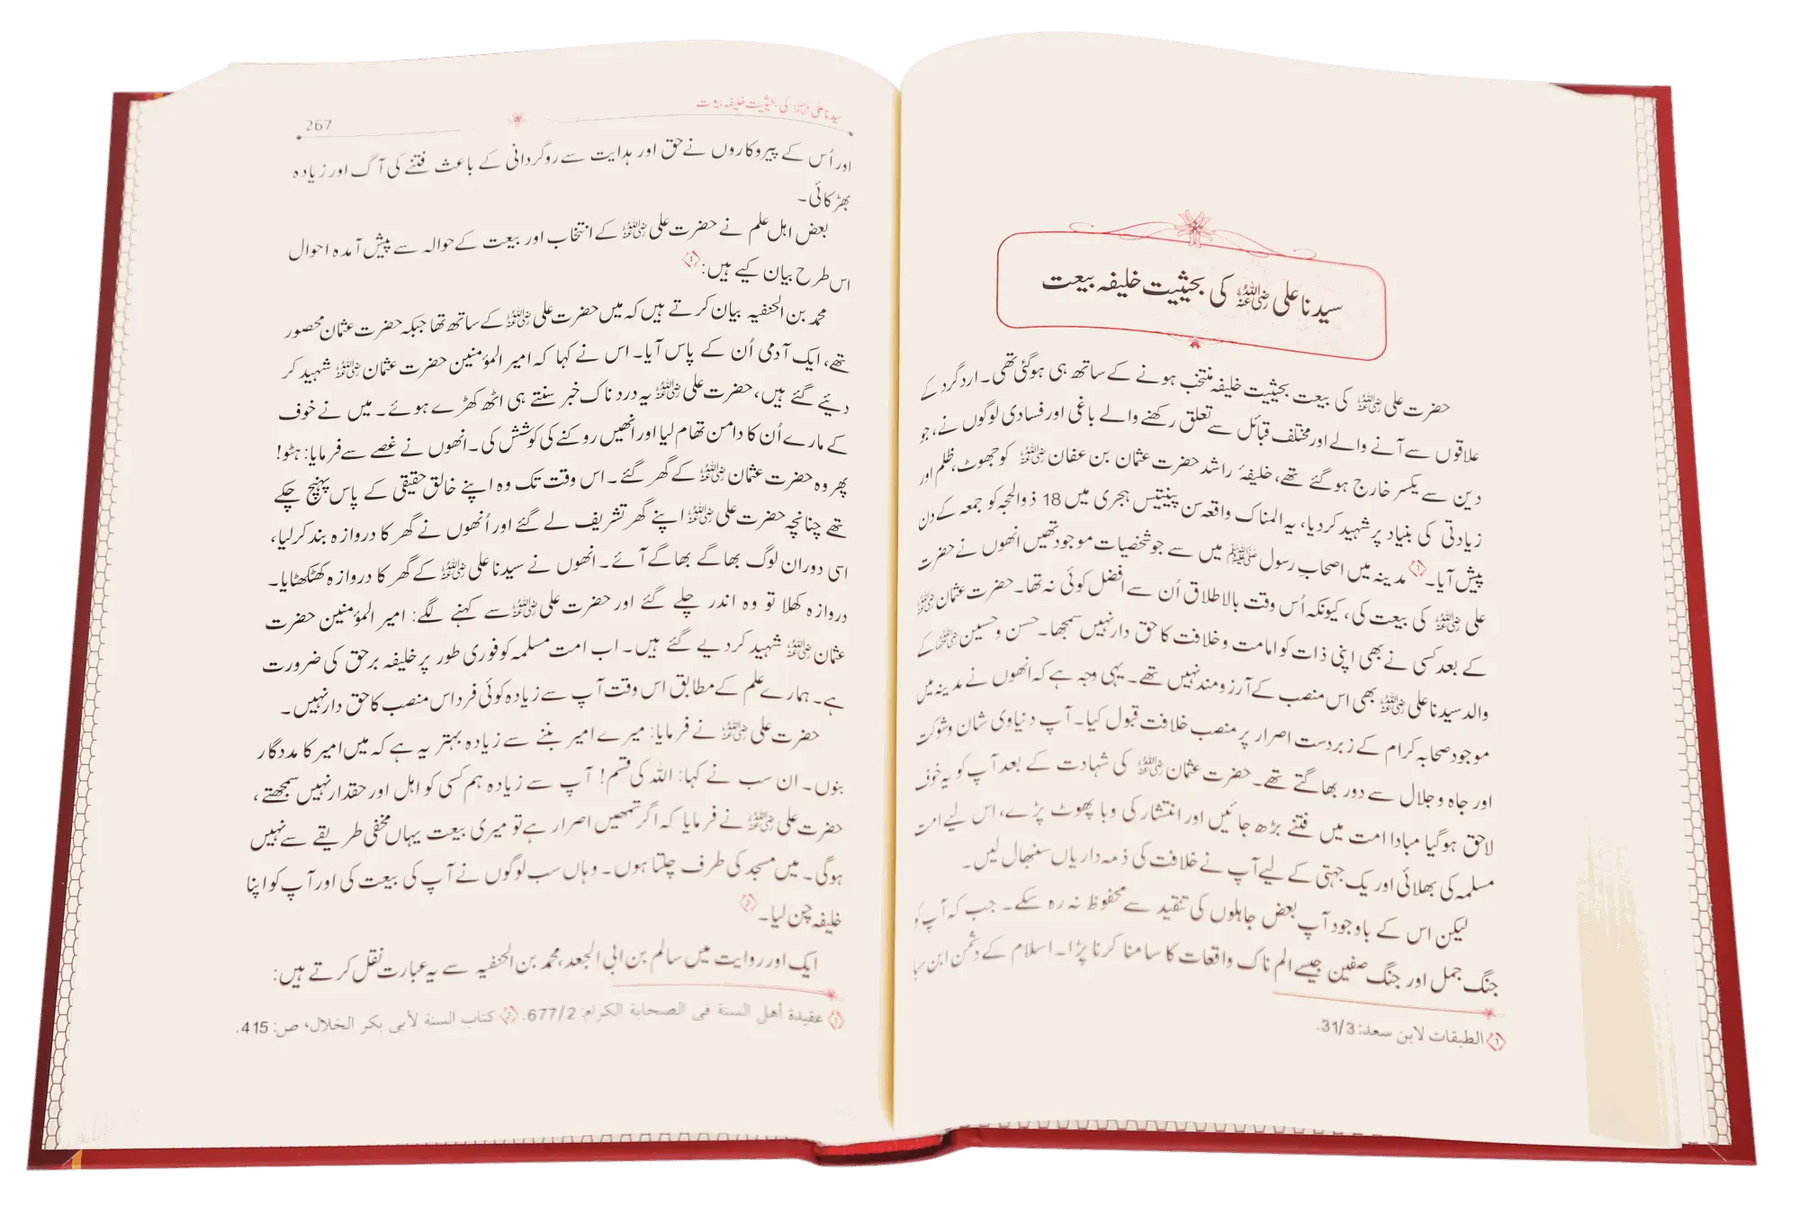 سیدنا علی ﷜ کی بحیثیت خلیفہ بیعت
حضرت علی ﷜ کی بیعت بحیثیت خلیفہ منتخب ہونے کے ساتھ ہی ہوگئی تھی۔ ارد گرد کے
علاقوں سے آنے والے اور مختلف قبائل سے تعلق رکھنے والے باغی اور فسادی لوگوں نے، جو
دین سے یکسر خارج ہوگئے تھے، خلیفۂ راشد حضرت عثمان بن عفان ﷜ کو جھوٹ، ظلم اور
زیادتی کی بنیاد پر شہید کردیا، یہ المناک واقعہ سن پینتیس ہجری میں 18 ذوالحجہ کو جمعہ کے دن
پیش آیا۔① مدینہ میں اصحابِ رسول ﷺ میں سے جو شخصیات موجود تھیں انھوں نے حضرت
علی ﷜ کی بیعت کی، کیونکہ اُس وقت بالاطلاق اُن سے افضل کوئی نہ تھا۔ حضرت عثمان ﷜
کے بعد کسی نے بھی اپنی ذات کو امامت و خلافت کا حق دار نہیں سمجھا۔ حسن و حسین ﷠ کے
والد سیدنا علی ﷜ بھی اس منصب کے آرزومند نہیں تھے۔ یہی وجہ ہے کہ انھوں نے مدینہ میں
موجود صحابہ کرام کے زبردست اصرار پر منصب خلافت قبول کیا۔ آپ دنیاوی شان و شوکت
اور جاہ و جلال سے دور بھاگتے تھے۔ حضرت عثمان ﷜ کی شہادت کے بعد آپ کو یہ خوف
لاحق ہوگیا مبادا امت میں فتنے بڑھ جائیں اور انتشار کی وبا پھوٹ پڑے، اس لیے امت
مسلمہ کی بھلائی اور یک جہتی کے لیے آپ نے خلافت کی ذمہ داریاں سنبھال لیں۔
لیکن اس کے باوجود آپ بعض جاہلوں کی تنقید سے محفوظ نہ رہ سکے۔ جب کہ آپ کو
جنگ جمل اور جنگ صفین جیسے الم ناک واقعات کا سامنا کرنا پڑا۔ اسلام کے دشمن ابن سبا
① الطبقات لابن سعد: 31/3.
سیدنا علی ﷜ کی بحیثیت خلیفہ بیعت
267
اور اُس کے پیروکاروں نے حق اور ہدایت سے روگردانی کے باعث فتنے کی آگ اور زیادہ
بھڑکائی۔
بعض اہل علم نے حضرت علی ﷜ کے انتخاب اور بیعت کے حوالہ سے پیش آمدہ احوال
اس طرح بیان کیے ہیں:①
محمد بن الحنفیہ بیان کرتے ہیں کہ میں حضرت علی ﷜ کے ساتھ تھا جبکہ حضرت عثمان محصور
تھے، ایک آدمی اُن کے پاس آیا۔ اس نے کہا کہ امیر المؤمنین حضرت عثمان ﷜ شہید کر
دیئے گئے ہیں، حضرت علی ﷜ یہ درد ناک خبر سنتے ہی اٹھ کھڑے ہوئے۔ میں نے خوف
کے مارے اُن کا دامن تھام لیا اور انھیں روکنے کی کوشش کی۔ انھوں نے غصے سے فرمایا: ہٹو!
پھر وہ حضرت عثمان ﷜ کے گھر گئے۔ اس وقت تک وہ اپنے خالق حقیقی کے پاس پہنچ چکے
تھے چنانچہ حضرت علی ﷜ اپنے گھر تشریف لے گئے اور اُنھوں نے گھر کا دروازہ بند کرلیا،
اسی دوران لوگ بھاگے بھاگے آئے۔ انھوں نے سیدنا علی ﷜ کے گھر کا دروازہ کھٹکھٹایا۔
دروازہ کھلا تو وہ اندر چلے گئے اور حضرت علی ﷜ سے کہنے لگے: امیر المؤمنین حضرت
عثمان ﷜ شہید کردیے گئے ہیں۔ اب امت مسلمہ کو فوری طور پر خلیفہ برحق کی ضرورت
ہے۔ ہمارے علم کے مطابق اس وقت آپ سے زیادہ کوئی فرد اس منصب کا حق دار نہیں۔
حضرت علی ﷜ نے فرمایا: میرے امیر بننے سے زیادہ بہتر یہ ہے کہ میں امیر کا مددگار
بنوں۔ ان سب نے کہا: اللہ کی قسم! آپ سے زیادہ ہم کسی کو اہل اور حقدار نہیں سمجھتے،
حضرت علی ﷜ نے فرمایا کہ اگر تمھیں اصرار ہے تو میری بیعت یہاں مخفی طریقے سے نہیں
ہوگی۔ میں مسجد کی طرف چلتا ہوں۔ وہاں سب لوگوں نے آپ کی بیعت کی اور آپ کو اپنا
خلیفہ چن لیا۔②
ایک اور روایت میں سالم بن ابی الجعد، محمد بن الحنفیہ سے یہ عبارت نقل کرتے ہیں:
① عقيدة أهل السنة في الصحابة الكرام: 677/2. ② كتاب السنة لأبي بكر الخلال، ص: 415.